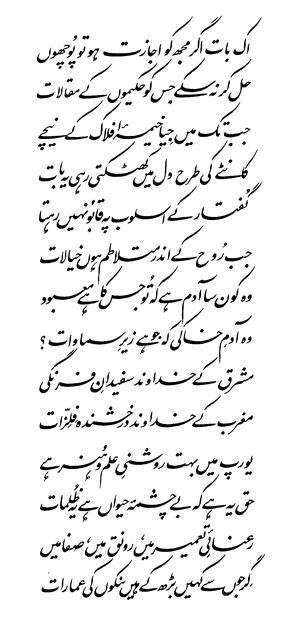 اک بات اگر مجھ کو اجازت ہو تو پُوچھوں
حل کر نہ سکے جس کو حکیموں کے مقالات
جب تک میں جِیا خیمۂ افلاک کے نیچے
کانٹے کی طرح دل میں کھٹکتی رہی یہ بات
گُفتار کے اسلوب پہ قابُو نہیں رہتا
جب رُوح کے اندر متلاطم ہوں خیالات
وہ کون سا آدم ہے کہ تُو جس کا ہے معبود
وہ آدمِ خاکی کہ جو ہے زیرِ سماوات؟
مشرق کے خداوند سفیدانِ فرنگی
مغرب کے خداوند درخشندہ فلِزّات
یورپ میں بہت روشنیِ علم و ہُنر ہے
حق یہ ہے کہ بے چشمۂ حیواں ہے یہ ظُلمات
رعنائیِ تعمیر میں، رونق میں، صفا میں
گِرجوں سے کہیں بڑھ کے ہیں بنکوں کی عمارات